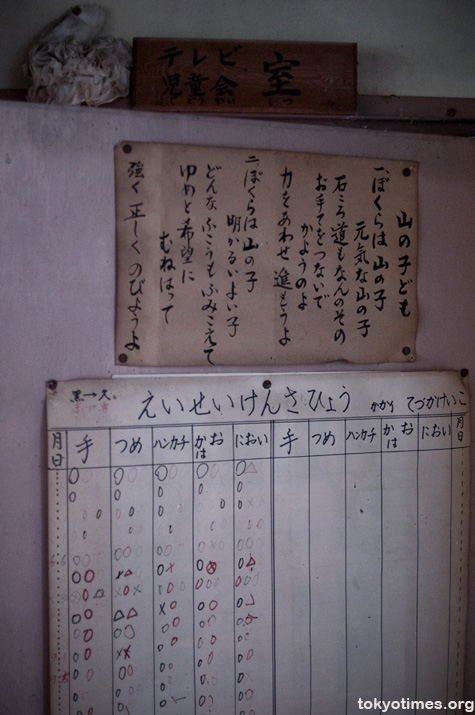 テレビ
児童会
室
山の子ども
一、ぼくらは 山の子
元気な山の子
石ころ道もなんのその
お手てをつないで
かようのよ
力をあわせ 進もうよ
二、ぼくらは 山の子
明かるいよい子
どんな ふこうも ふみこえて
ゆめと希望に
むねはって
強く 正しく のびようよ
えいせいけんさひょう かかり てづかけいこ
月日 手 つめ ハンカチ かお は におい 手 つめ ハンカチ かお は におい 月日
tokyotimes.org